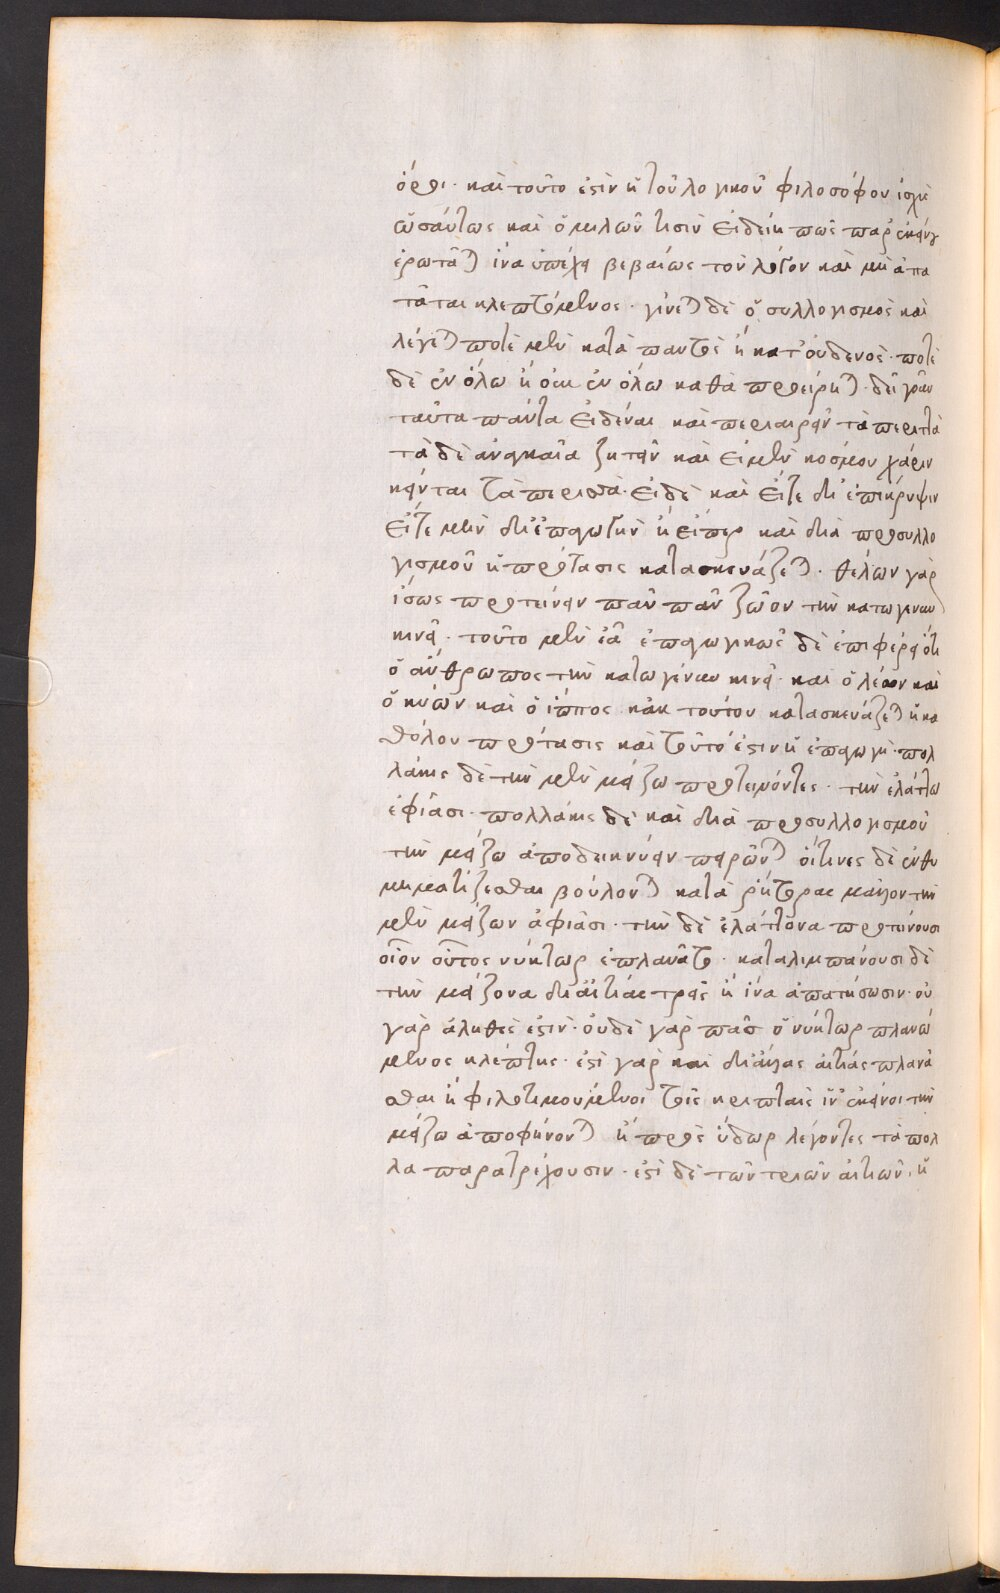 ὅροι· καὶ τοῦτό ἐστιν ἡ τοῦ λογικοῦ φιλοσόφου ἰσχὺ
ὡσαύτως καὶ ὁμιλῶν τισὶν εἰδείη πῶς παρ' ἐκείν
ἐρωτᾶται ἵνα ὑπέχῃ βεβαίως τὸν λόγον καὶ μὴ ἀπα
τᾶται κλεπτόμενος· γίνεται δὲ ὁ συλλογισμὸς καὶ
λέγεται ποτὲ μὲν κατὰ παντὸς ἢ κατ' οὐδενός· ποτὲ
δὲ ἐν ὅλω ἢ οὐκ ἐν ὅλω καθὰ προείρηται· δεῖ γοῦν
ταῦτα πάντα εἰδέναι καὶ περιαιρεῖν τὰ περιττὰ
τὰ δὲ ἀναγκαῖα ζητεῖν καὶ εἰ μὲν κόσμου χάριν
κεῖνται τὰ περιττά· εἰ δὲ καὶ εἴτε δι' ἐπικρυψιν
εἴτε μὴν δι' ἐπαγωγὴν ἢ εἴπερ καὶ διὰ προσυλλο
γισμοῦ ἡ πρότασις κατασκευάζεται· θέλων γὰρ
ἴσως προτείνειν πᾶν πᾶν ζῶον τὴν κάτω γένυν
κινεῖ· τοῦτο μὲν ἐᾶ ἐπαγωγικῶς δὲ ἐπιφέρει ὅτι
ὁ ἄνθρωπος τὴν κάτω γένυν κινεῖ· καὶ ὁ λέων καὶ
ὁ κύων καὶ ὁ ἵππος κἀκ τούτου κατασκευάζεται ἡ κα
θόλου πρότασις καὶ τοῦτό ἐστιν ἡ ἐπαγωγή· πολ
λάκις δὲ τὴν μὲν μείζω προτείνοντες· τὴν ἐλάττω
ἐφιᾶσι· πολλάκις δὲ καὶ διὰ προσυλλογισμοῦ
τὴν μείζω ἀποδεικνύειν πειρῶνται οἵτινες δὲ ἐνθυ
μηματίζεσθαι βούλονται κατὰ ῥήτορας μᾶλλον τὴν
μὲν μείζων ἀφιᾶσι· τὴν δὲ ἐλάττονα προτείνουσι
οἷον οὗτος νύκτωρ ἐπλανᾶτο· καταλιμπάνουσι δὲ
τὴν μείζονα δι' αἰτίας τρεῖς ἢ ἵνα ἀπατήσωσιν· οὐ
γὰρ ἀληθές ἐστιν· οὐδὲ γὰρ πᾶς ὁ νύκτωρ πλανώ
μενος κλέπτης· ἔστι γὰρ καὶ δι' ἄλλας αἰτίας πλανᾶ
σθαι ἢ φιλοτιμούμενοι τοῖς κριταῖς ἵν' ἐκεῖνοι τὴν
μείζω ἀποφήνονται ἢ πρὸς ὕδωρ λέγοντες τὰ πολ
λὰ παρατρέχουσιν· ἔστι δὲ τῶν τριῶν αἰτιῶν· ἡ